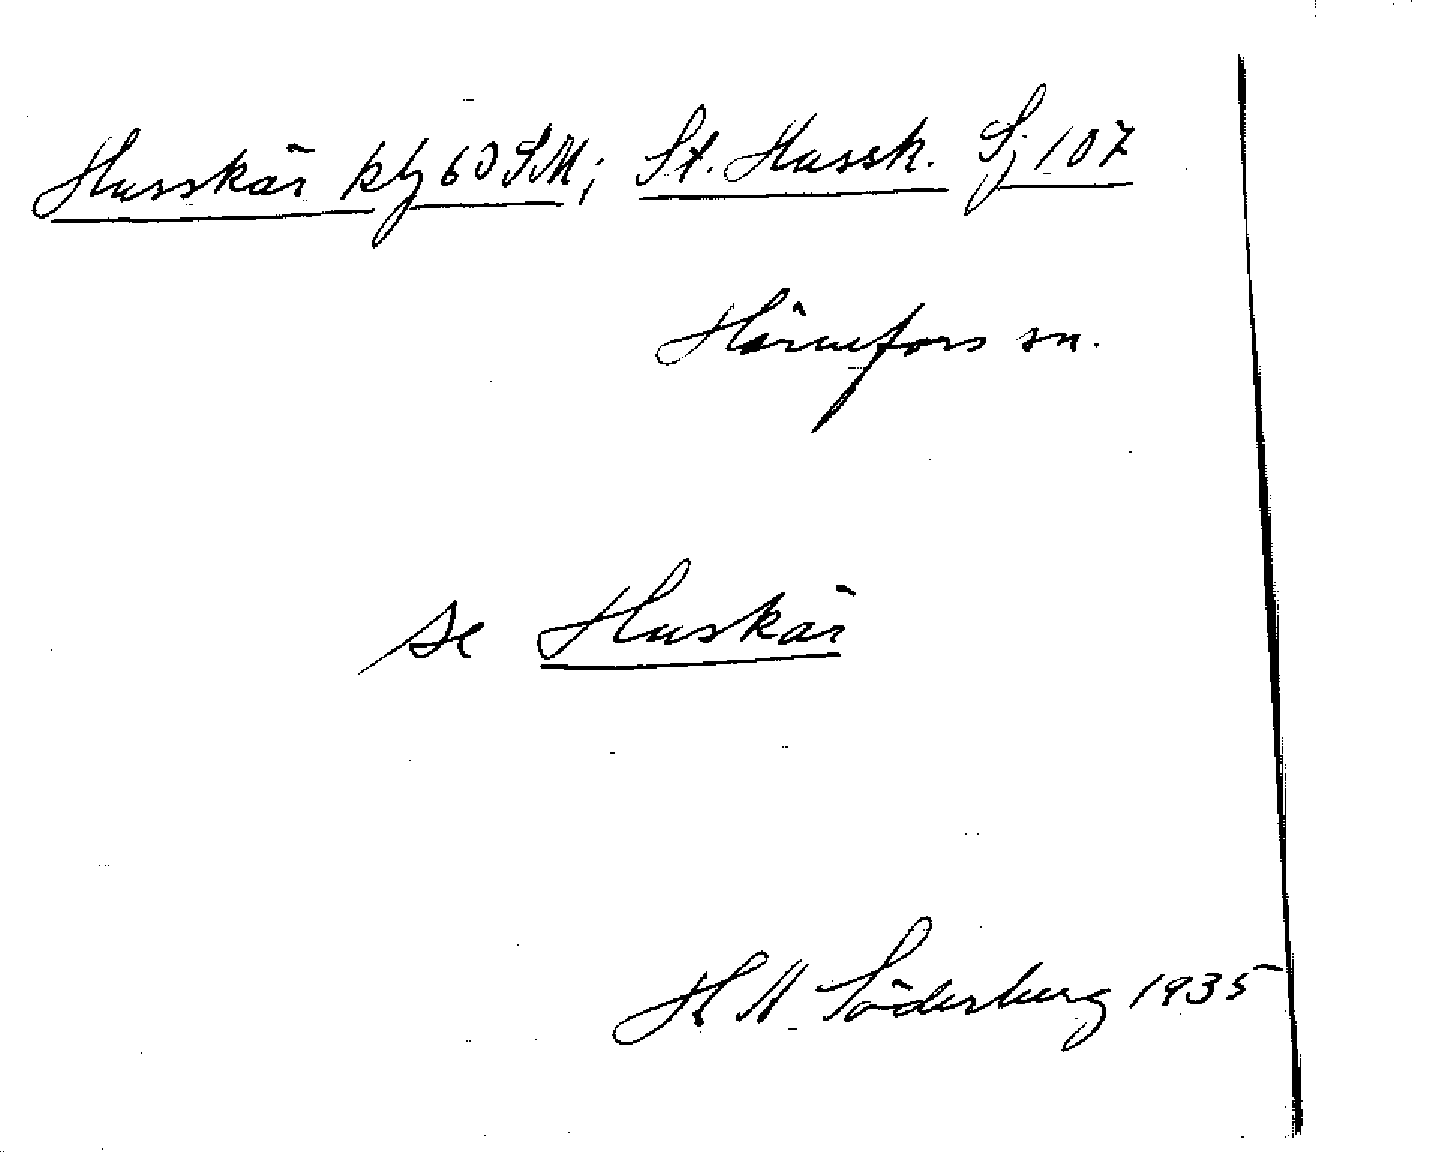 Husskär kbj 60 SM; St. Hussk. Sj 107
Hörnefors sn.
se Huskär
H M Söderberg 1935